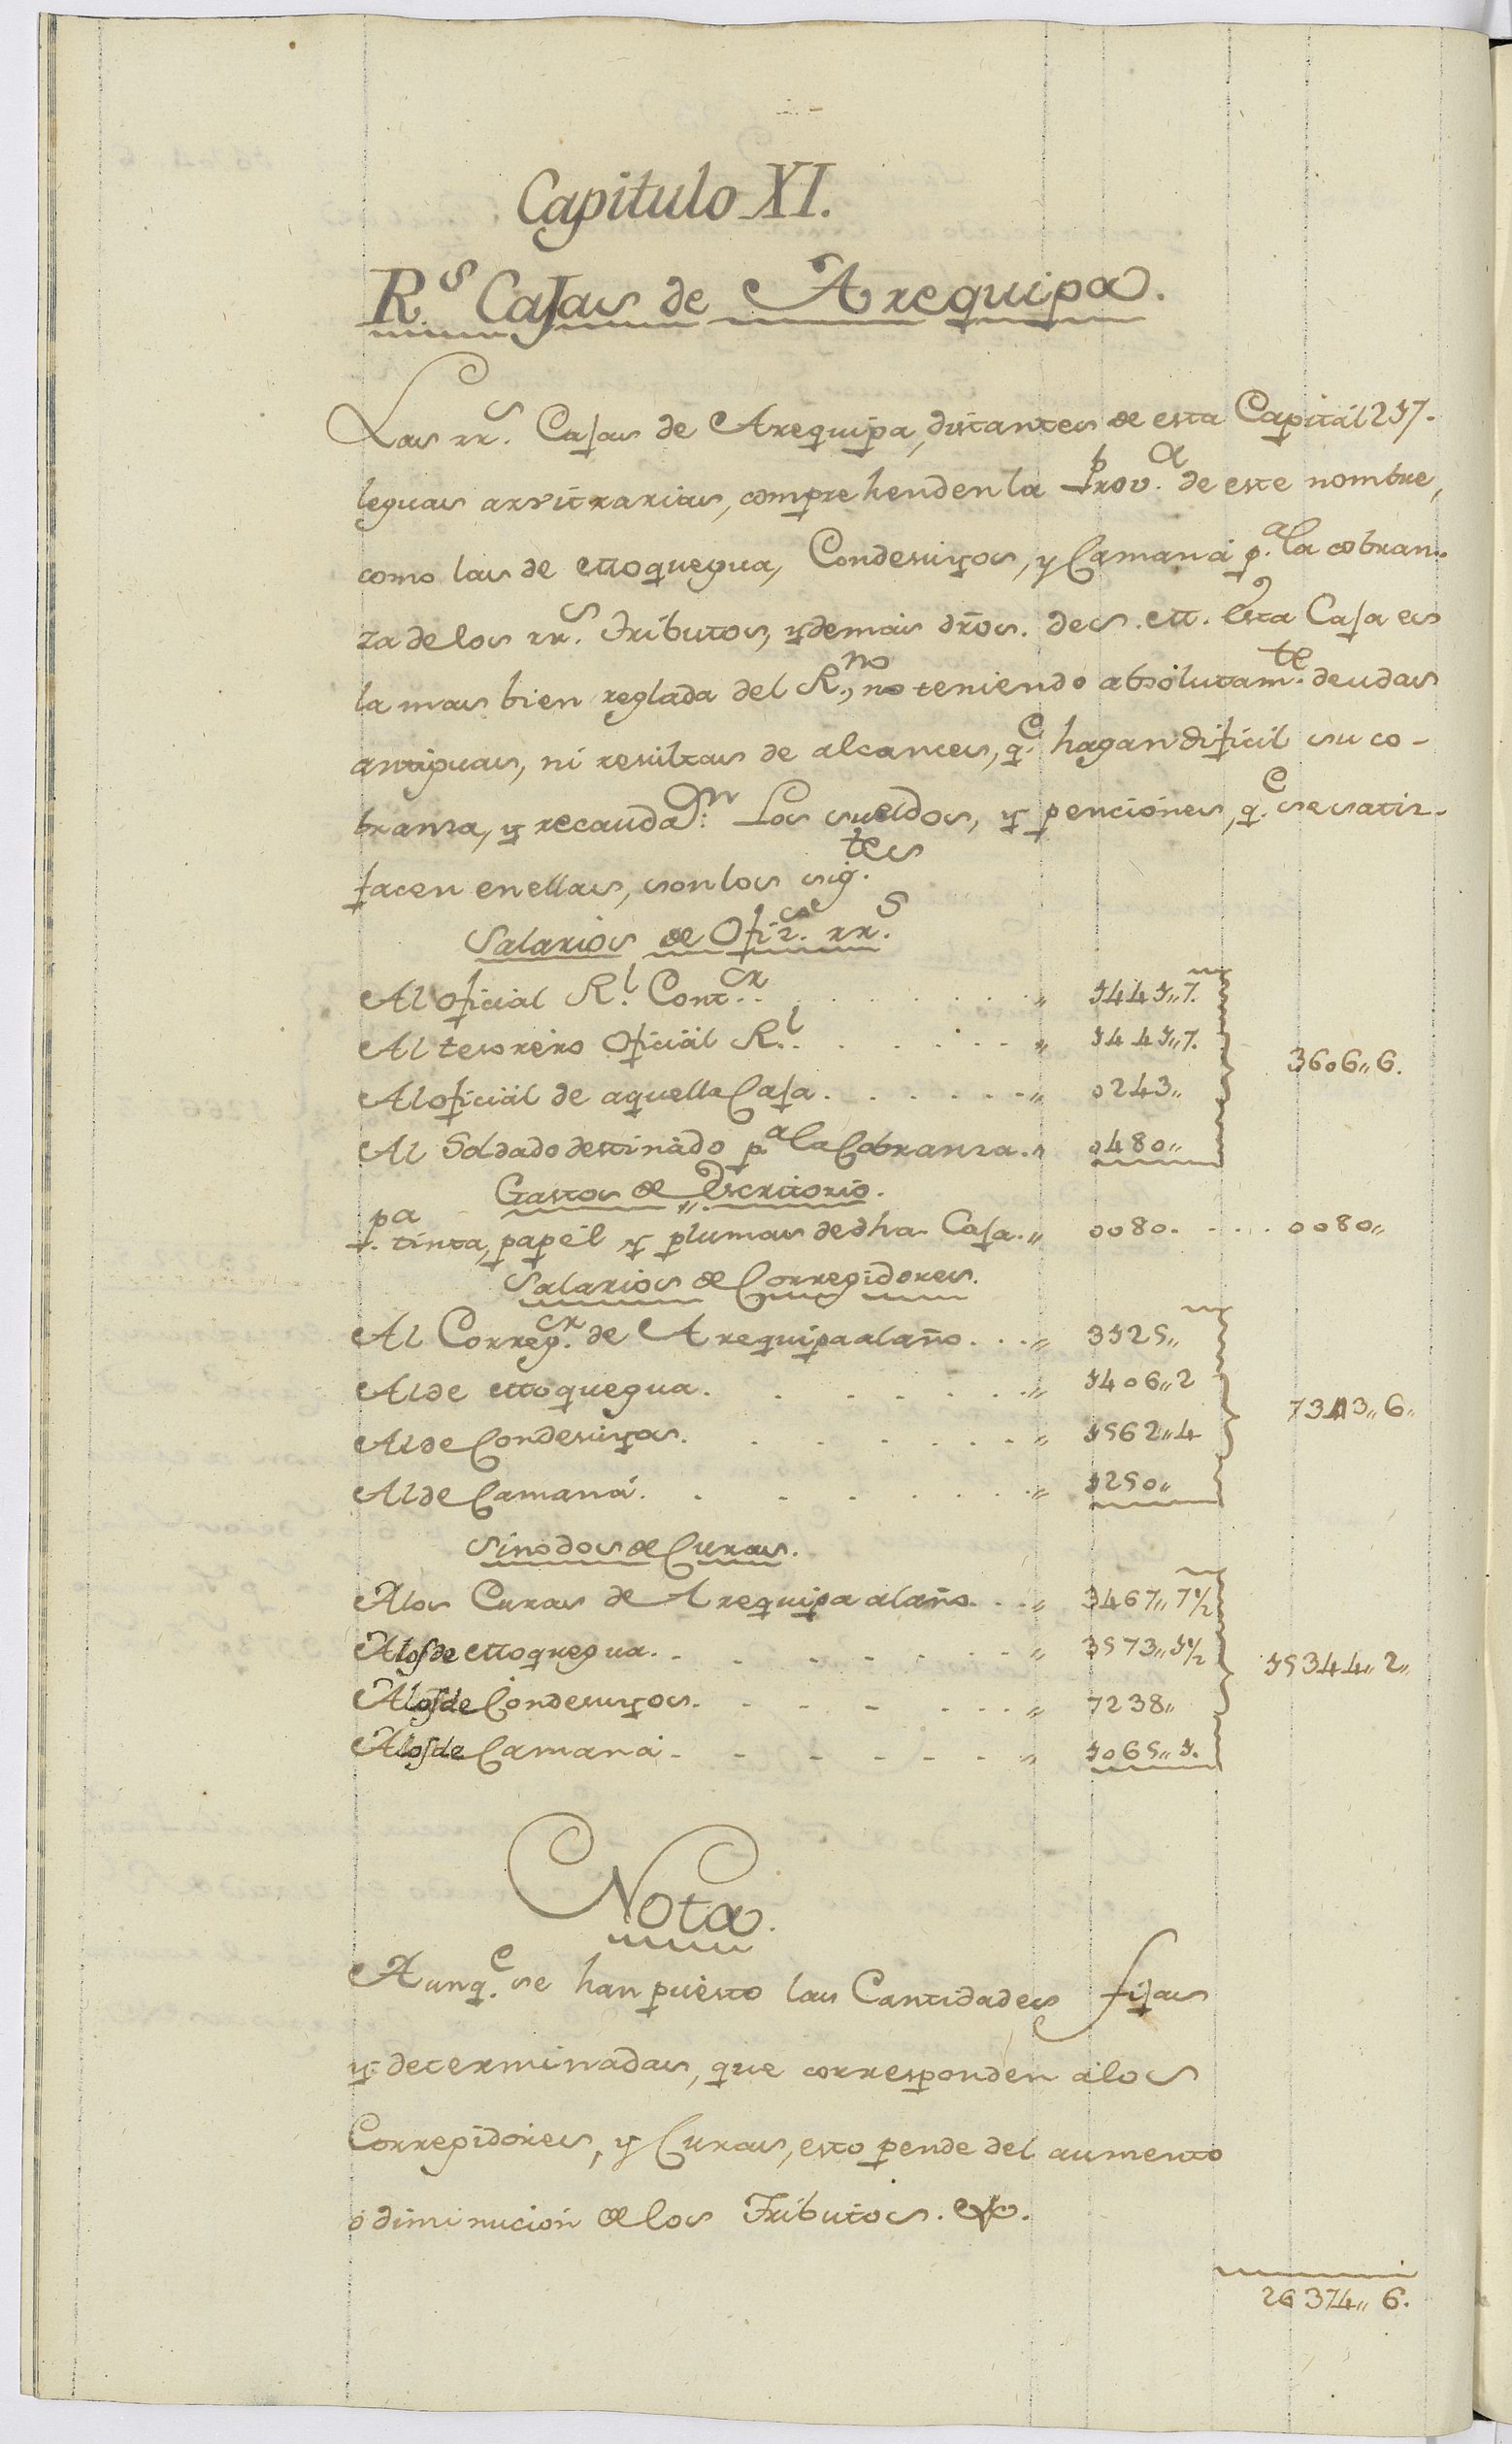 Capitulo XI.
R.s Cajas de Arequipa.
Las rr.s Cajas de Arequipa, distantes de esta Capital 217.
leguas arvitrarias, comprehenden la Prov.a de este nombre,
como las de Moquegua, Condesuyos, y Camaná p.a la cobran-
za de los rr.s tributos, y demas dr̃os. de S. M. Esta Caja es
la mas bien reglada del R.no, no teniendo absolutam.te deudas
antiguas, ni resultas de alcances, q.e hagan dificil su co-
branza, y recauda.on Los sueldos, y penciones, q.e se satiz-
facen en ellas, son los sig.tes
Salarios de Ofiz.es rr.s
Al oficial R.l Cont.or . . . . . . . „ 1441„7.
Al tesorero Oficial R.l . . . . . . „ 1441„7.
Al oficial de aquella Caja . . . . . . „ 0243„ 3606„6.
Al Soldado destinado p.a la Cobranza . „ 0480„
Gastos de Escritorio.
p.a tinta, papel y plumas de dha. Caja. „ 0080. . . . 0080„
Salarios de Corregidores.
Al Correg.or de Arequipa al año. . . „ 3125„
Al de Moquegua. . . . . . . „ 1406„2
Al de Condesuyos. . . . . . . „ 1562„4 7343„6„
Al de Camaná. . . . . . . „ 1250„
Sinodos de Curas.
A los Curas de Arequipa al año. . . „ 3467„7½
A los de Moquegua. . . . . . . „ 3573„1½
A los de Condesuyos. . . . . . . „ 7238„ 15344„2„
A los de Camaná - - - - - - „ 1065„1.
Nota.
Aunq.e se han puesto las Cantidades fijas
y determinadas, que corresponden á los
Corregidores, y Curas, esto pende del aumento
ó diminucion de los Tributos. &a.
26374„6.